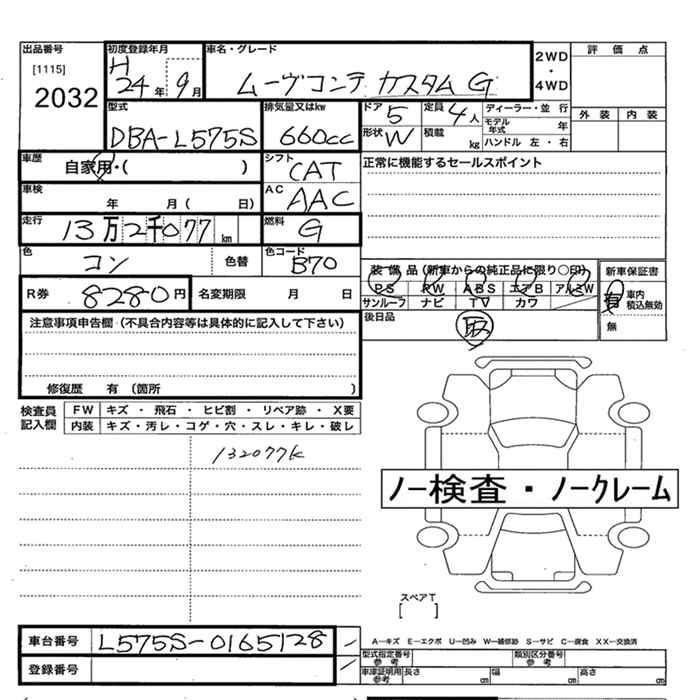 出品番号 初度登録年月 車名・グレード 2WD・4WD 評価点
[1115] H
2032 24年9月 ムーヴコンテ カスタム G
型式 排気量又はkw ドア 5 定員 4人 ディーラー・並行 外装 内装
モデル年式 年
DBA-L575S 660cc 形状 W 積載 kg ハンドル 左・右
車歴 自家用・( ) シフト CAT 正常に機能するセールスポイント
車検 年 月( 日) AC AAC
走行 13万2千077km 燃料 G
色 コン 色替 色コード B70
装備品(新車からの純正品に限り○印) 新車保証書
R券 8280円 名変期限 月 日 PS PW ABS エアB アルミW 有 車内積込無効
サンルーフ ナビ TV カワ
注意事項申告欄(不具合内容等は具体的に記入して下さい) 後日品 無
修復歴 有(箇所 )
検査員記入欄 FW キズ・飛石・ヒビ割・リペア跡・X要
内装 キズ・汚レ・コゲ・穴・スレ・キレ・破レ
132077K
ノー検査・ノークレーム
スペアT
[ ]
車台番号 L575S-0165128 A―キズ E―エクボ U―凹み W―補修跡 S―サビ C―腐食 XX―交換済
登録番号 型式指定番号 参考 類別区分番号 参考
車庫証明用 参考 長さ cm 幅 cm 高さ cm